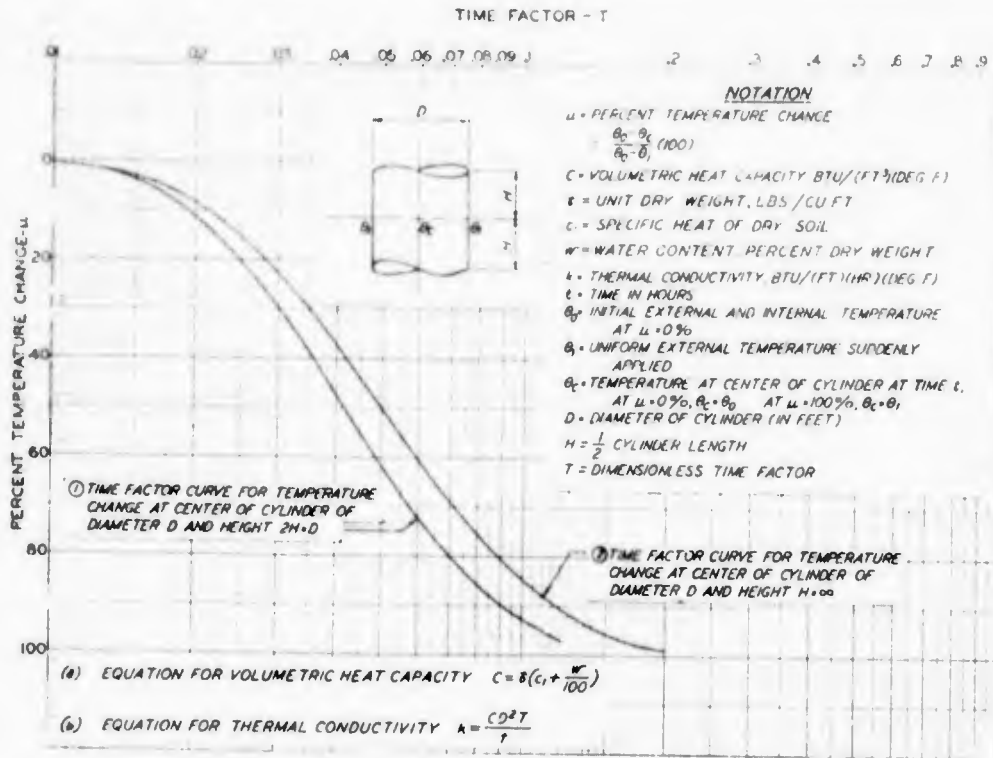 TIME FACTOR - T
.01 .02 .03 .04 .05 .06 .07 .08 .09 .1 .2 .3 .4 .5 .6 .7 .8 .9
NOTATION
u = PERCENT TEMPERATURE CHANGE
= (θ₀ - θc)/(θ₀ - θ₁) (100)
C = VOLUMETRIC HEAT CAPACITY BTU/(FT³)(DEG F)
γ = UNIT DRY WEIGHT, LBS/CU FT
c₁ = SPECIFIC HEAT OF DRY SOIL
w = WATER CONTENT, PERCENT DRY WEIGHT
k = THERMAL CONDUCTIVITY, BTU/(FT)(HR)(DEG F)
t = TIME IN HOURS
θ₀ = INITIAL EXTERNAL AND INTERNAL TEMPERATURE
AT u = 0%
θ₁ = UNIFORM EXTERNAL TEMPERATURE SUDDENLY
APPLIED
θc = TEMPERATURE AT CENTER OF CYLINDER AT TIME t,
AT u = 0%, θc = θ₀ AT u = 100%, θc = θ₁
D = DIAMETER OF CYLINDER (IN FEET)
H = 1/2 CYLINDER LENGTH
T = DIMENSIONLESS TIME FACTOR
D
H
θc
H
PERCENT TEMPERATURE CHANGE-u
0
20
40
60
80
100
① TIME FACTOR CURVE FOR TEMPERATURE
CHANGE AT CENTER OF CYLINDER OF
DIAMETER D AND HEIGHT 2H=D
② TIME FACTOR CURVE FOR TEMPERATURE
CHANGE AT CENTER OF CYLINDER OF
DIAMETER D AND HEIGHT H=∞
(a) EQUATION FOR VOLUMETRIC HEAT CAPACITY C = γ(c₁ + w/100)
(b) EQUATION FOR THERMAL CONDUCTIVITY k = CD²T/t